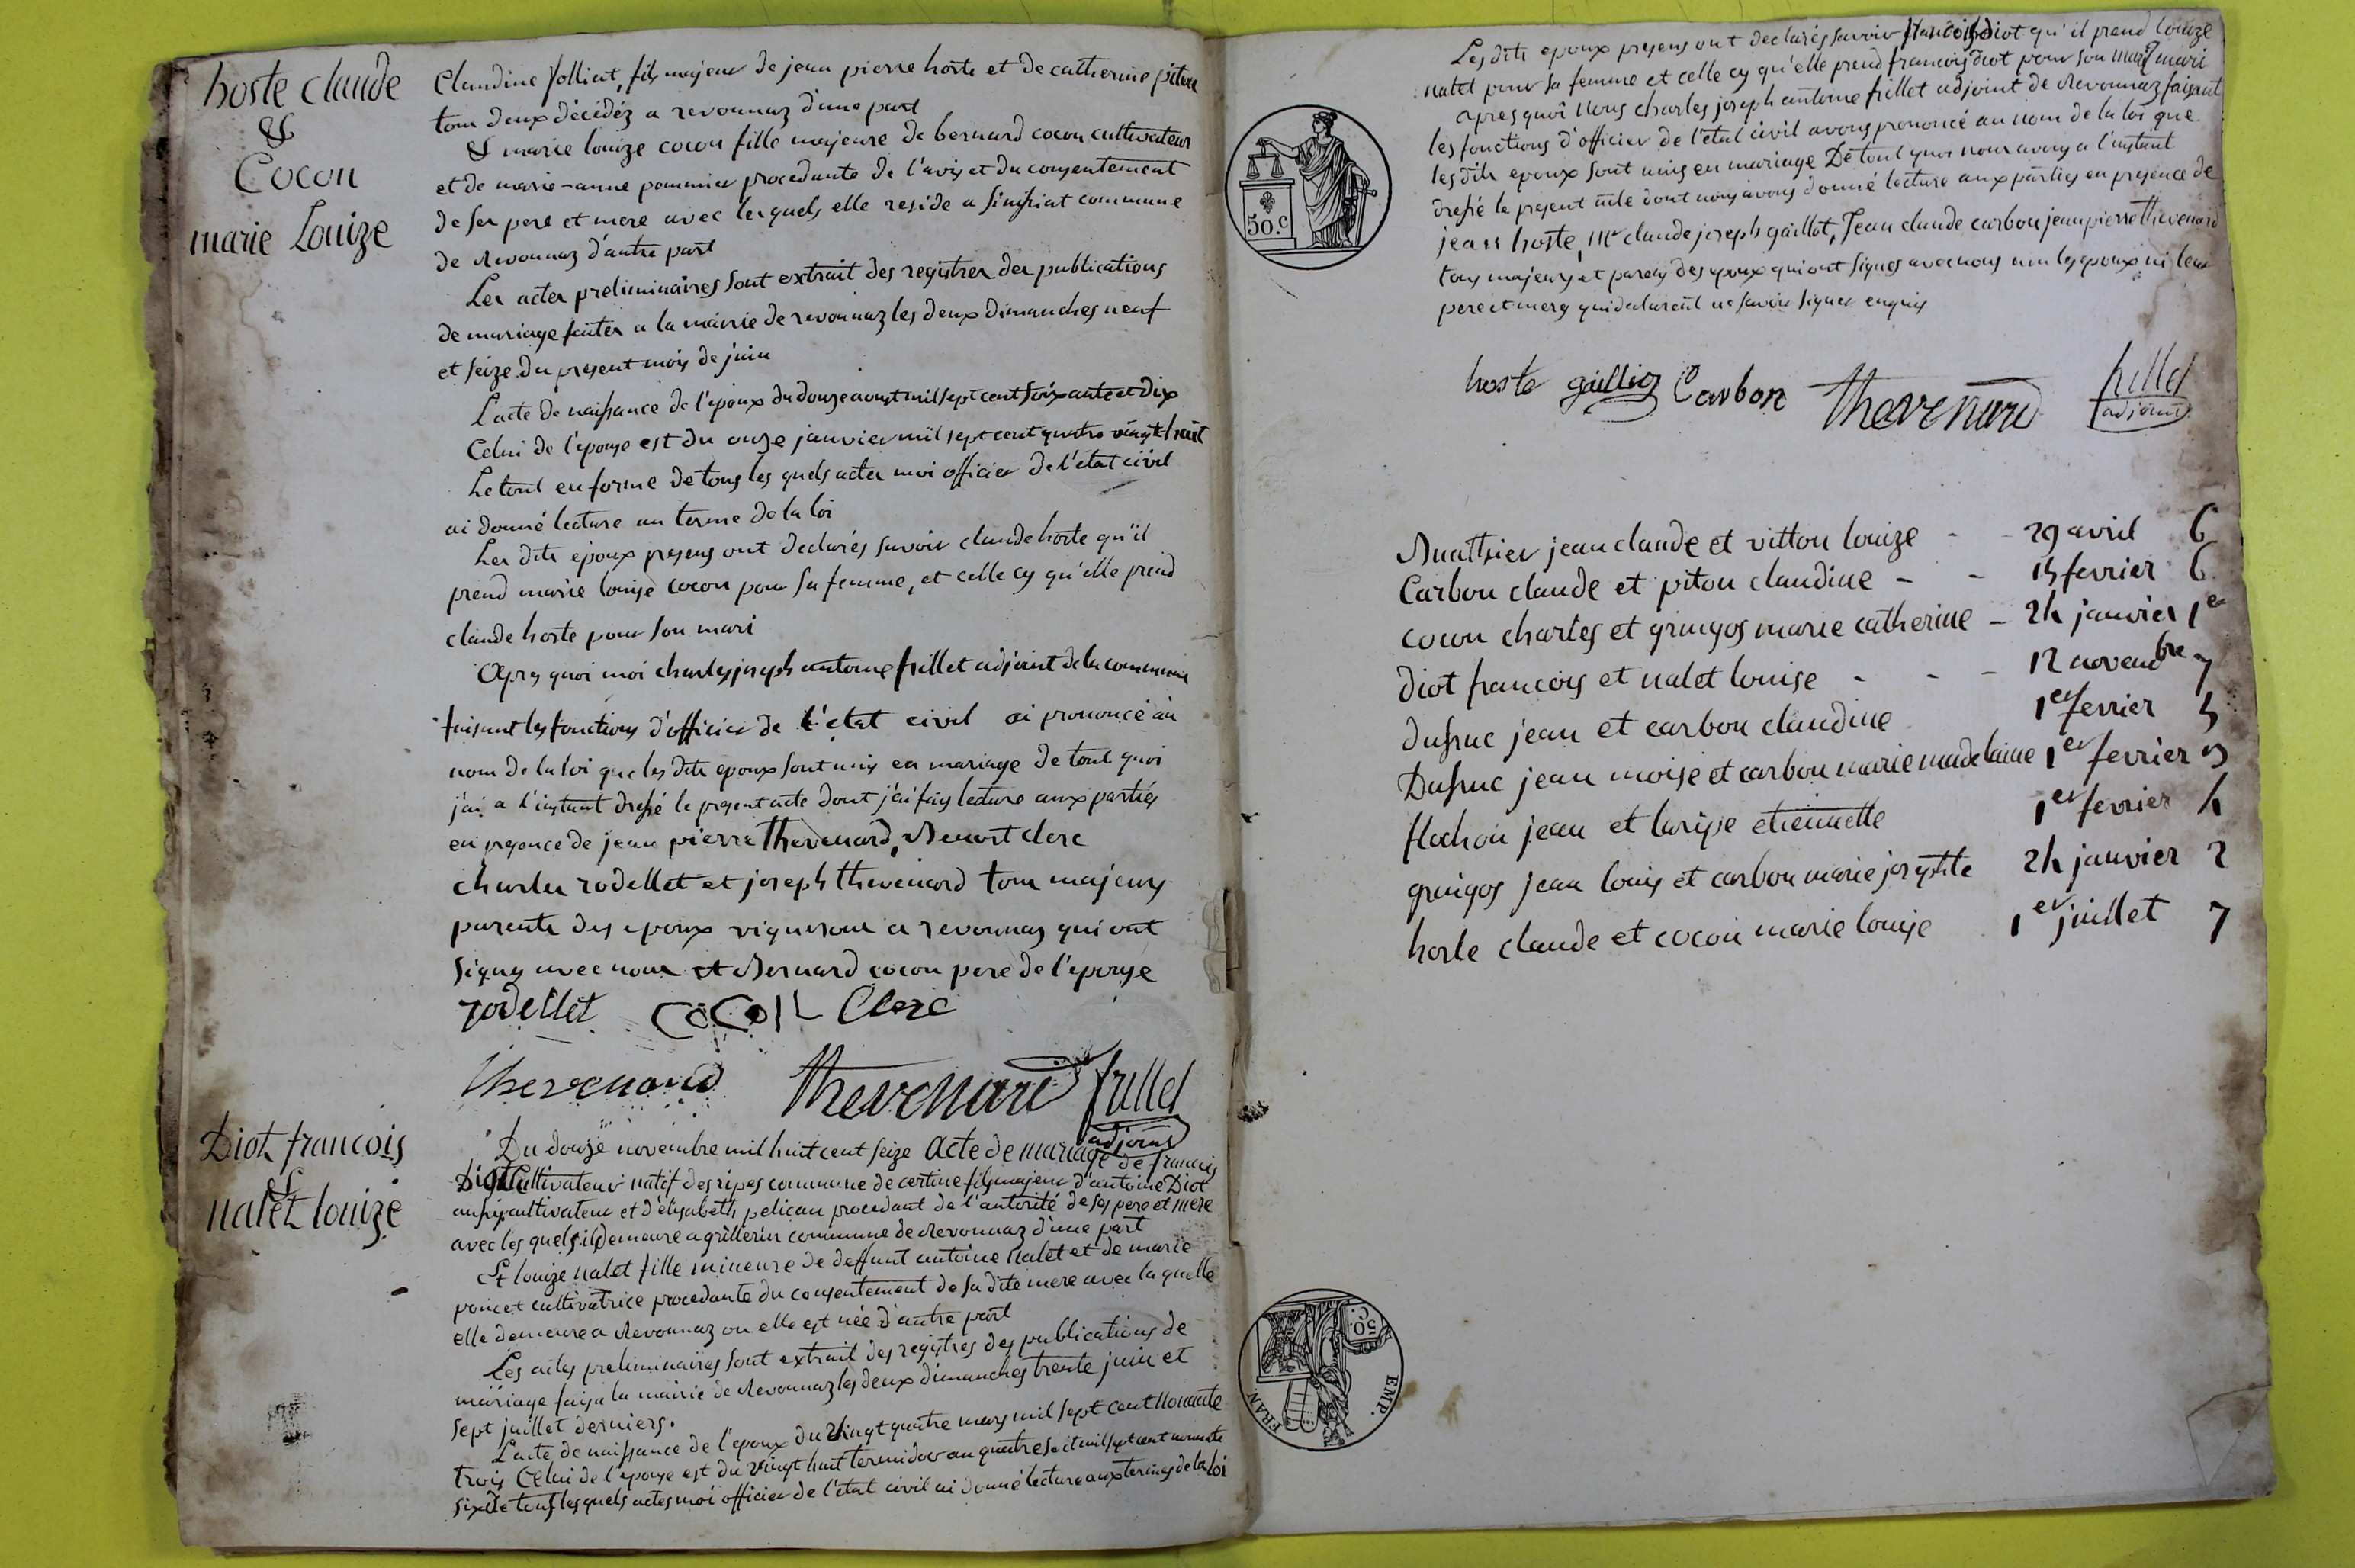 hoste claude
&
Cocon
marie Louize
Claudine folliat, fils majeur de jean pierre hoste et de catherine piton
tous deux décédéz a revonnaz d'une part
& marie louize cocon fille majeure de bernard cocon cultivateur
et de marie-anne pommier procedante de l'avis et du consentement
de ses pere et mere avec lesquels elle reside a Simssiat commune
de Revonnaz d'autre part
Les actes preliminaires sont extrait des registres des publications
de mariage faites a la mairie de revonnaz les deux dimanches neuf
et seize du present mois de juin
L'acte de naissance de l'epoux du douze aoust mil sept cent soixante et dix
Celui de l'epouse est du onze janvier mil sept cent quatre vingt huit
Le tout en forme de tous les quels actes moi officier de l'état civil
ai donné lecture au terme de la loi
Les dits epoux presens ont declarés savoir claude hoste qu'il
prend marie louise cocon pour sa femme, et celle cy qu'elle prend
claude hoste pour son mari
Apres quoi moi charles joseph antoine frillet adjoint de la commune
faisant les fonctions d'officier de l'état civil ai prononcé au
nom de la loi que les dits epoux sont unis en mariage de tout quoi
j'ai a l'instant dressé le present acte dont j'ai fais lecture aux parties
en presence de jean pierre thevenard, Benoit clerc
charles rodellet et joseph thevenard tous majeurs
parents des epoux vignerons a revonnas qui ont
signes avec nous et Bernard cocon pere de l'epouse
rodellet cocon Clerc
thevenard thevenard frillet
adjoint
Diot francois
&
nalet louize
Du douze novembre mil huit cent seize acte de mariage de francois
Diot Cultivateur natif des ripes commune de certine fils majeur d'antoine Diot
aussi cultivateur et d'élisabeth pelican procedant de l'autorité de ses pere et mere
avec les quels il demeure a grillerin commune de Revonnaz d'une part
Et louize nalet fille mineure de deffunt antoine nalet et de marie
poncet cultivatrice procedante du consentement de sa dite mere avec la quelle
elle demeure a Revonnaz ou elle est née d'autre part
Les actes preliminaires sont extrait des registres des publications de
mariage fais a la mairie de Revonnaz les deux dimanches trente juin et
sept juillet derniers.
L'acte de naissance de l'epoux du vingt quatre mars mil sept cent nonante
trois Celui de l'epouse est du vingt huit termidor an quatre soit mil sept cent nonante
six De tous lesquels actes moi officier de l'état civil ai donné lecture aux termes de la loi
Les dits epoux presens ont declarés savoir francois diot qu'il prend louize
natet pour sa femme et celle cy qu'elle prend francois diot pour son mari
apres quoi nous charles joseph antoine frillet adjoint de Revonnaz faisant
les fonctions d'officier de l'etat civil avons prononcé au nom de la loi que
les dits epoux sont unis en mariage De tout quoi nous avons a l'instant
dressé le present acte dont nous avons donné lecture aux parties en presence de
jean hoste, Mr claude joseph gaillot, Jean claude carbon jean pierre thevenard
tous majeurs et parens des epoux qui ont signes avec nous non les epoux ni leur
pere et meres qui declarent ne savoir signer enquis
50.c
hoste Carbon thevenard frillet
adjoint
Ruathier jean claude et vitton louize - - 29 avril 6
Carbon claude et piton claudine - - 15 fevrier 6
cocon charles et gringos marie catherine - 24 janvier 1er
diot francois et nalet louise - - - 12 novembre 7
dufruc jean et carbon claudine 1er fevrier 5
Dufruc jean moise et carbon marie madelaine 1er fevrier 3
flochon jean et laripe etiennette 1er fevrier 4
gringos jean louis et carbon marie josephte 24 janvier 2
hoste claude et cocon marie louise 1er juillet 7
50.c.
EMP.
FRAN.